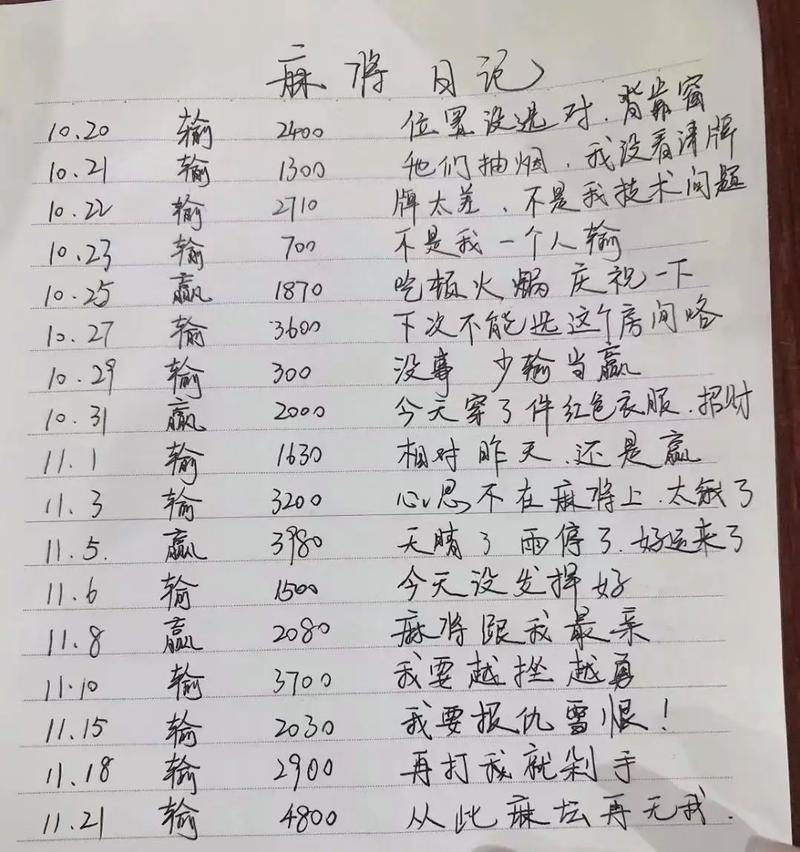 麻将日记
10.20 输 2400 位置没选对、背靠窗
10.21 输 1300 他们抽烟、我没看清牌
10.22 输 2710 牌太差、不是我技术问题
10.23 输 700 不是我一个人输
10.25 赢 1870 吃顿火锅 庆祝一下
10.27 输 3600 下次不能选这个房间咯
10.29 输 300 没事 少输当赢
10.31 赢 2000 今天穿了件红色衣服、招财
11.1 输 1630 相对昨天、还是赢
11.3 输 3200 心思不在麻将上、太饿了
11.5. 赢 3980 天晴了 雨停了、好运来了
11.6 输 1500 今天没发挥好
11.8 赢 2080 麻将跟我最亲
11.10 输 3700 我要越挫越勇
11.15 输 2030 我要报仇雪恨！
11.18 输 2900 再打我就剁手
11.21 输 4800 从此麻坛再无我.